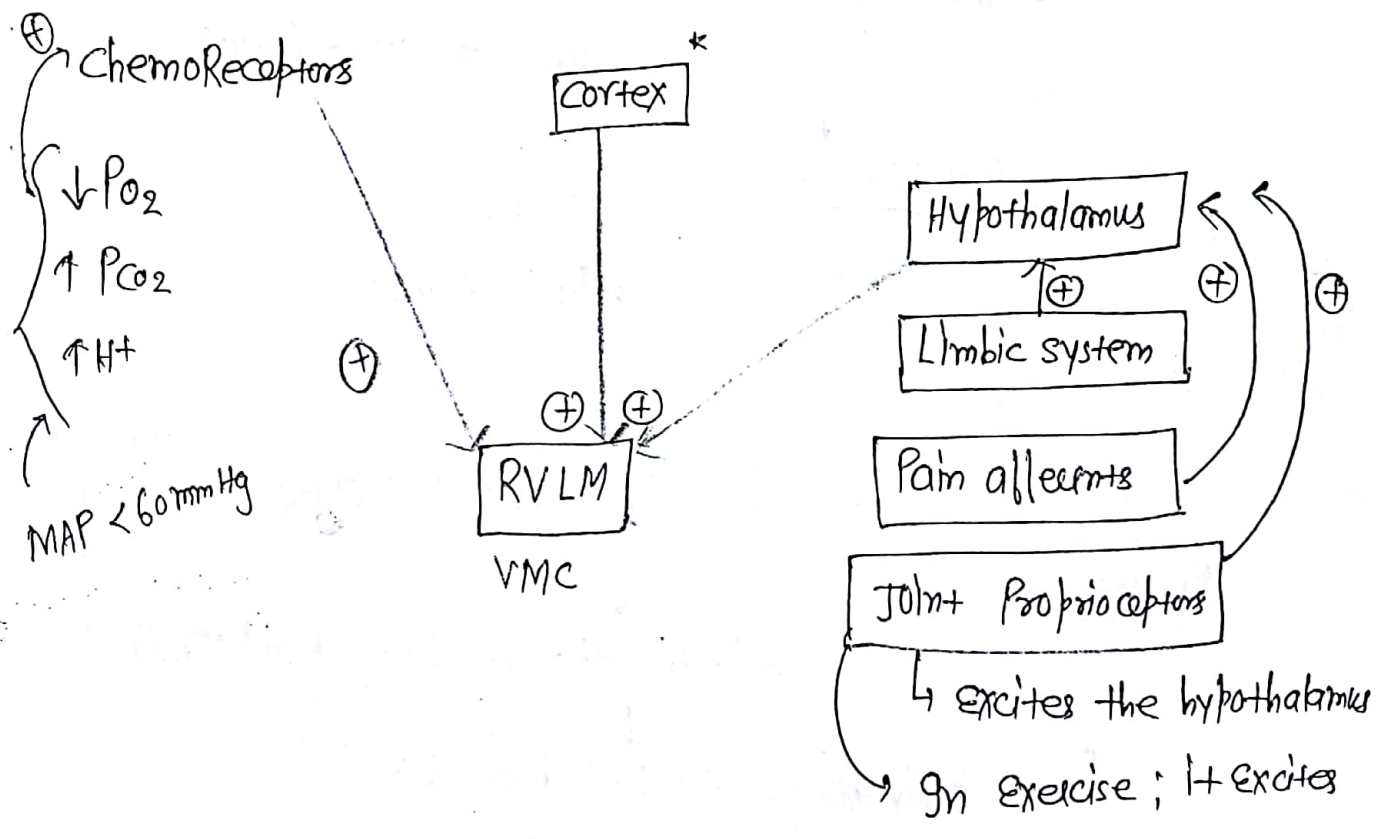 ⊕
ChemoReceptors
↓ PO2
↑ PCO2
↑ H+
MAP < 60 mmHg
⊕
*
Cortex
⊕ ⊕
RVLM
VMC
Hypothalamus
⊕ ⊕ ⊕
Limbic system
Pain afferents
Joint Proprioceptors
↳ excites the hypothalamus
→ In exercise ; it excites